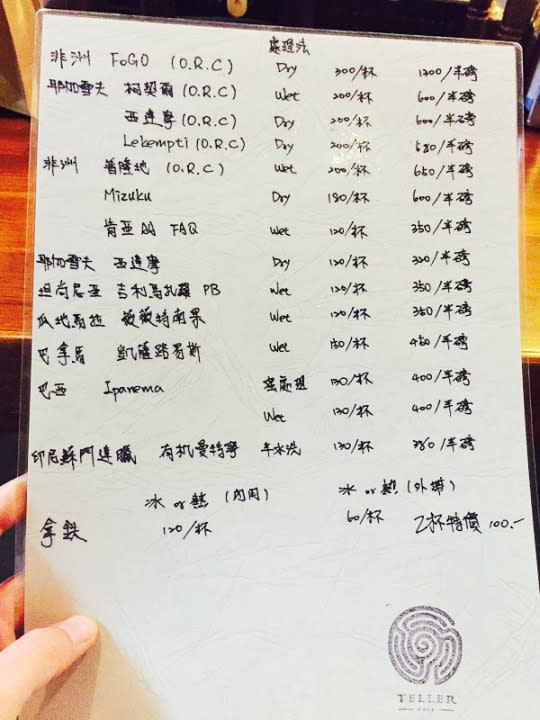 處理法
非洲 FOGO (O.R.C) Dry 300/杯 1200/半磅
耶加雪夫 柯契爾 (O.R.C) Wet 200/杯 600/半磅
西達摩 (O.R.C) Dry 200/杯 600/半磅
Lekempti (O.R.C) Dry 200/杯 580/半磅
非洲 普隆地 (O.R.C) Wet 200/杯 650/半磅
Mizuku Dry 180/杯 600/半磅
肯亞AA FAQ Wet 120/杯 350/半磅
耶加雪夫 西達摩 Dry 120/杯 320/半磅
坦尚尼亞 吉利馬札羅 PB Wet 120/杯 350/半磅
瓜地馬拉 薇薇特南果 Wet 120/杯 350/半磅
巴拿馬 凱薩路易斯 Wet 150/杯 450/半磅
巴西 Ipanema 蜜處理 130/杯 400/半磅
Wet 130/杯 400/半磅
印尼蘇門達臘 有机曼特寧 半水洗 130/杯 380/半磅
冰 or 熱 (內用) 冰 or 熱 (外帶)
拿鉄 120/杯 60/杯 2杯特價 100.-
TELLER